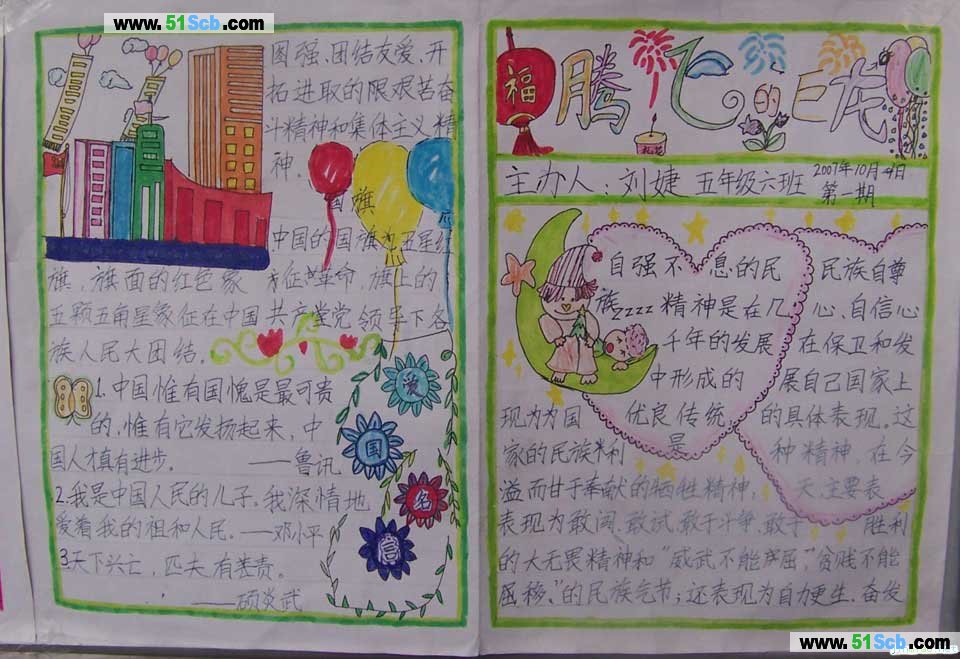 www.51Scb.com
福
腾飞的巨龙
礼花
主办人：刘婕 五年级六班 2007年10月4日
第一期
自强不息的民
族zzzz精神是在几
千年的发展
中形成的
优良传统，
民族自尊
心、自信心
在保卫和发
展自己国家上
的具体表现。这
种精神，在今
天，主要表
现为为国
家的民族利
溢而甘于奉献的牺牲精神，
表现为敢闯、敢试、敢于斗争、敢于胜利
的大无畏精神和“威武不能屈，”贫贱不能
屈移，”的民族气节；还表现为自力更生、奋发
图强、团结友爱、开
拓进取的限艰苦奋
斗精神和集体主义精
神。
国旗
中国的国旗为五星红
旗，旗面的红色象征革命，旗上的
五颗五角星象征在中国共产党党领导下各
族人民大团结。
1.中国惟有国愧是最可贵
的，惟有它发扬起来，中
国人才真有进步。——鲁讯
2.我是中国人民的儿子。我深情地
爱着我的祖和人民。—邓小平
3天下兴亡，匹夫有差责。
——顾炎武
爱
国
名
言
www.51Scb.com